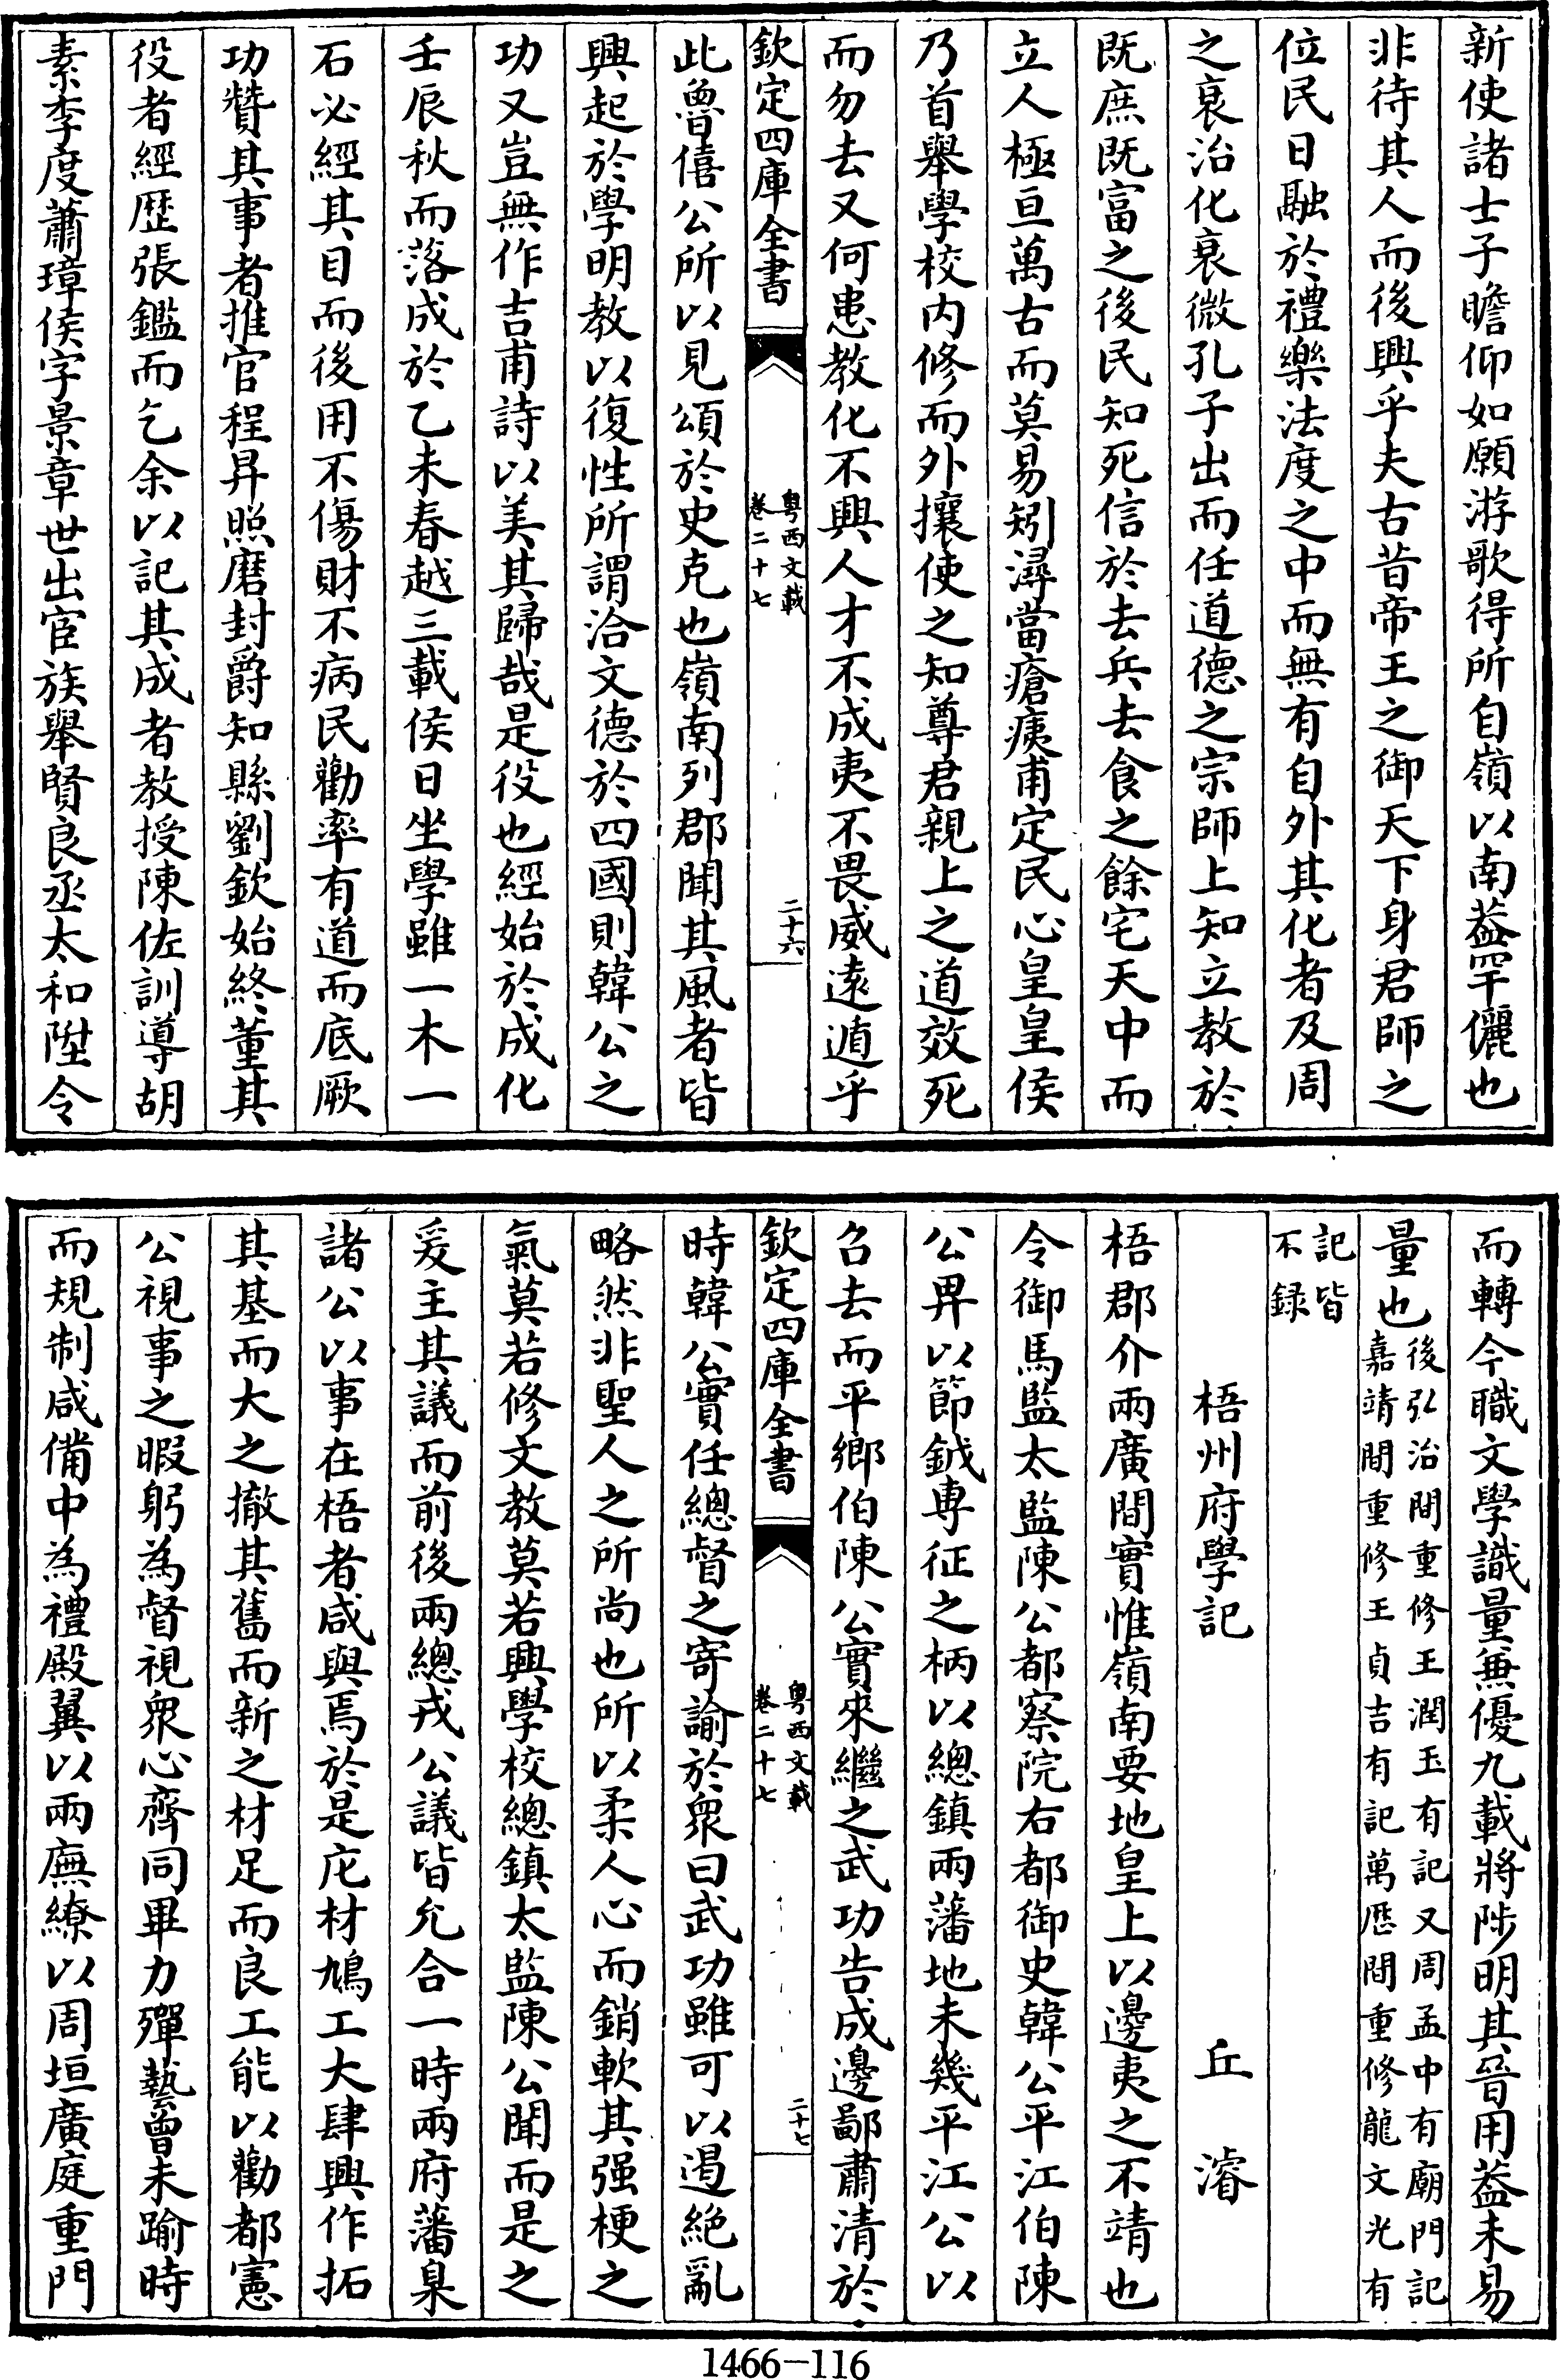 新使諸士子瞻仰如願游歌得所自嶺以南葢罕儷也
非待其人而後興乎夫古昔帝王之御天下身君師之
位民日融於禮樂法度之中而無有自外其化者及周
之衰治化衰微孔子出而任道德之宗師上知立教於
既庶既富之後民知死信於去兵去食之餘宅天中而
立人極亘萬古而莫易矧潯當瘡痍甫定民心皇皇侯
乃首舉學校内修而外攘使之知尊君親上之道效死
而勿去又何患教化不興人才不成夷不畏威遠遁乎
欽定四庫全書
粤西文載
卷二十七
二十六
此魯僖公所以見頌於史克也嶺南列郡聞其風者皆
興起於學明教以復性所謂洽文德於四國則韓公之
功又豈無作吉甫詩以美其歸哉是役也經始於成化
壬辰秋而落成於乙未春越三載侯日坐學雖一木一
石必經其目而後用不傷財不病民勸率有道而底厥
功贊其事者推官程昇照磨封爵知縣劉欽始終董其
役者經歷張鑑而乞余以記其成者教授陳佐訓導胡
素李度蕭璋侯字景章世出宦族舉賢良丞太和陞令
而轉今職文學識量兼優九載將陟明其晉用葢未易
量也後弘治間重修王潤玉有記又周孟中有廟門記
嘉靖間重修王貞吉有記萬厯間重修龍文光有
記皆
不録
梧州府學記
丘濬
梧郡介兩廣間實惟嶺南要地皇上以邊夷之不靖也
令御馬監太監陳公都察院右都御史韓公平江伯陳
公畀以節鉞專征之柄以總鎮兩藩地未幾平江公以
召去而平鄉伯陳公實來繼之武功告成邊鄙肅清於
欽定四庫全書
粤西文載
卷二十七
二十七
時韓公實任總督之寄諭於衆曰武功雖可以遏絶亂
略然非聖人之所尚也所以柔人心而銷軟其强梗之
氣莫若修文教莫若興學校總鎮太監陳公聞而是之
爰主其議而前後兩總戎公議皆允合一時兩府藩臬
諸公以事在梧者咸與焉於是庀材鳩工大肆興作拓
其基而大之撤其舊而新之材足而良工能以勸都憲
公視事之暇躬為督視衆心齊同畢力殫藝曾未踰時
而規制咸備中為禮殿翼以兩廡繚以周垣廣庭重門
1466-116